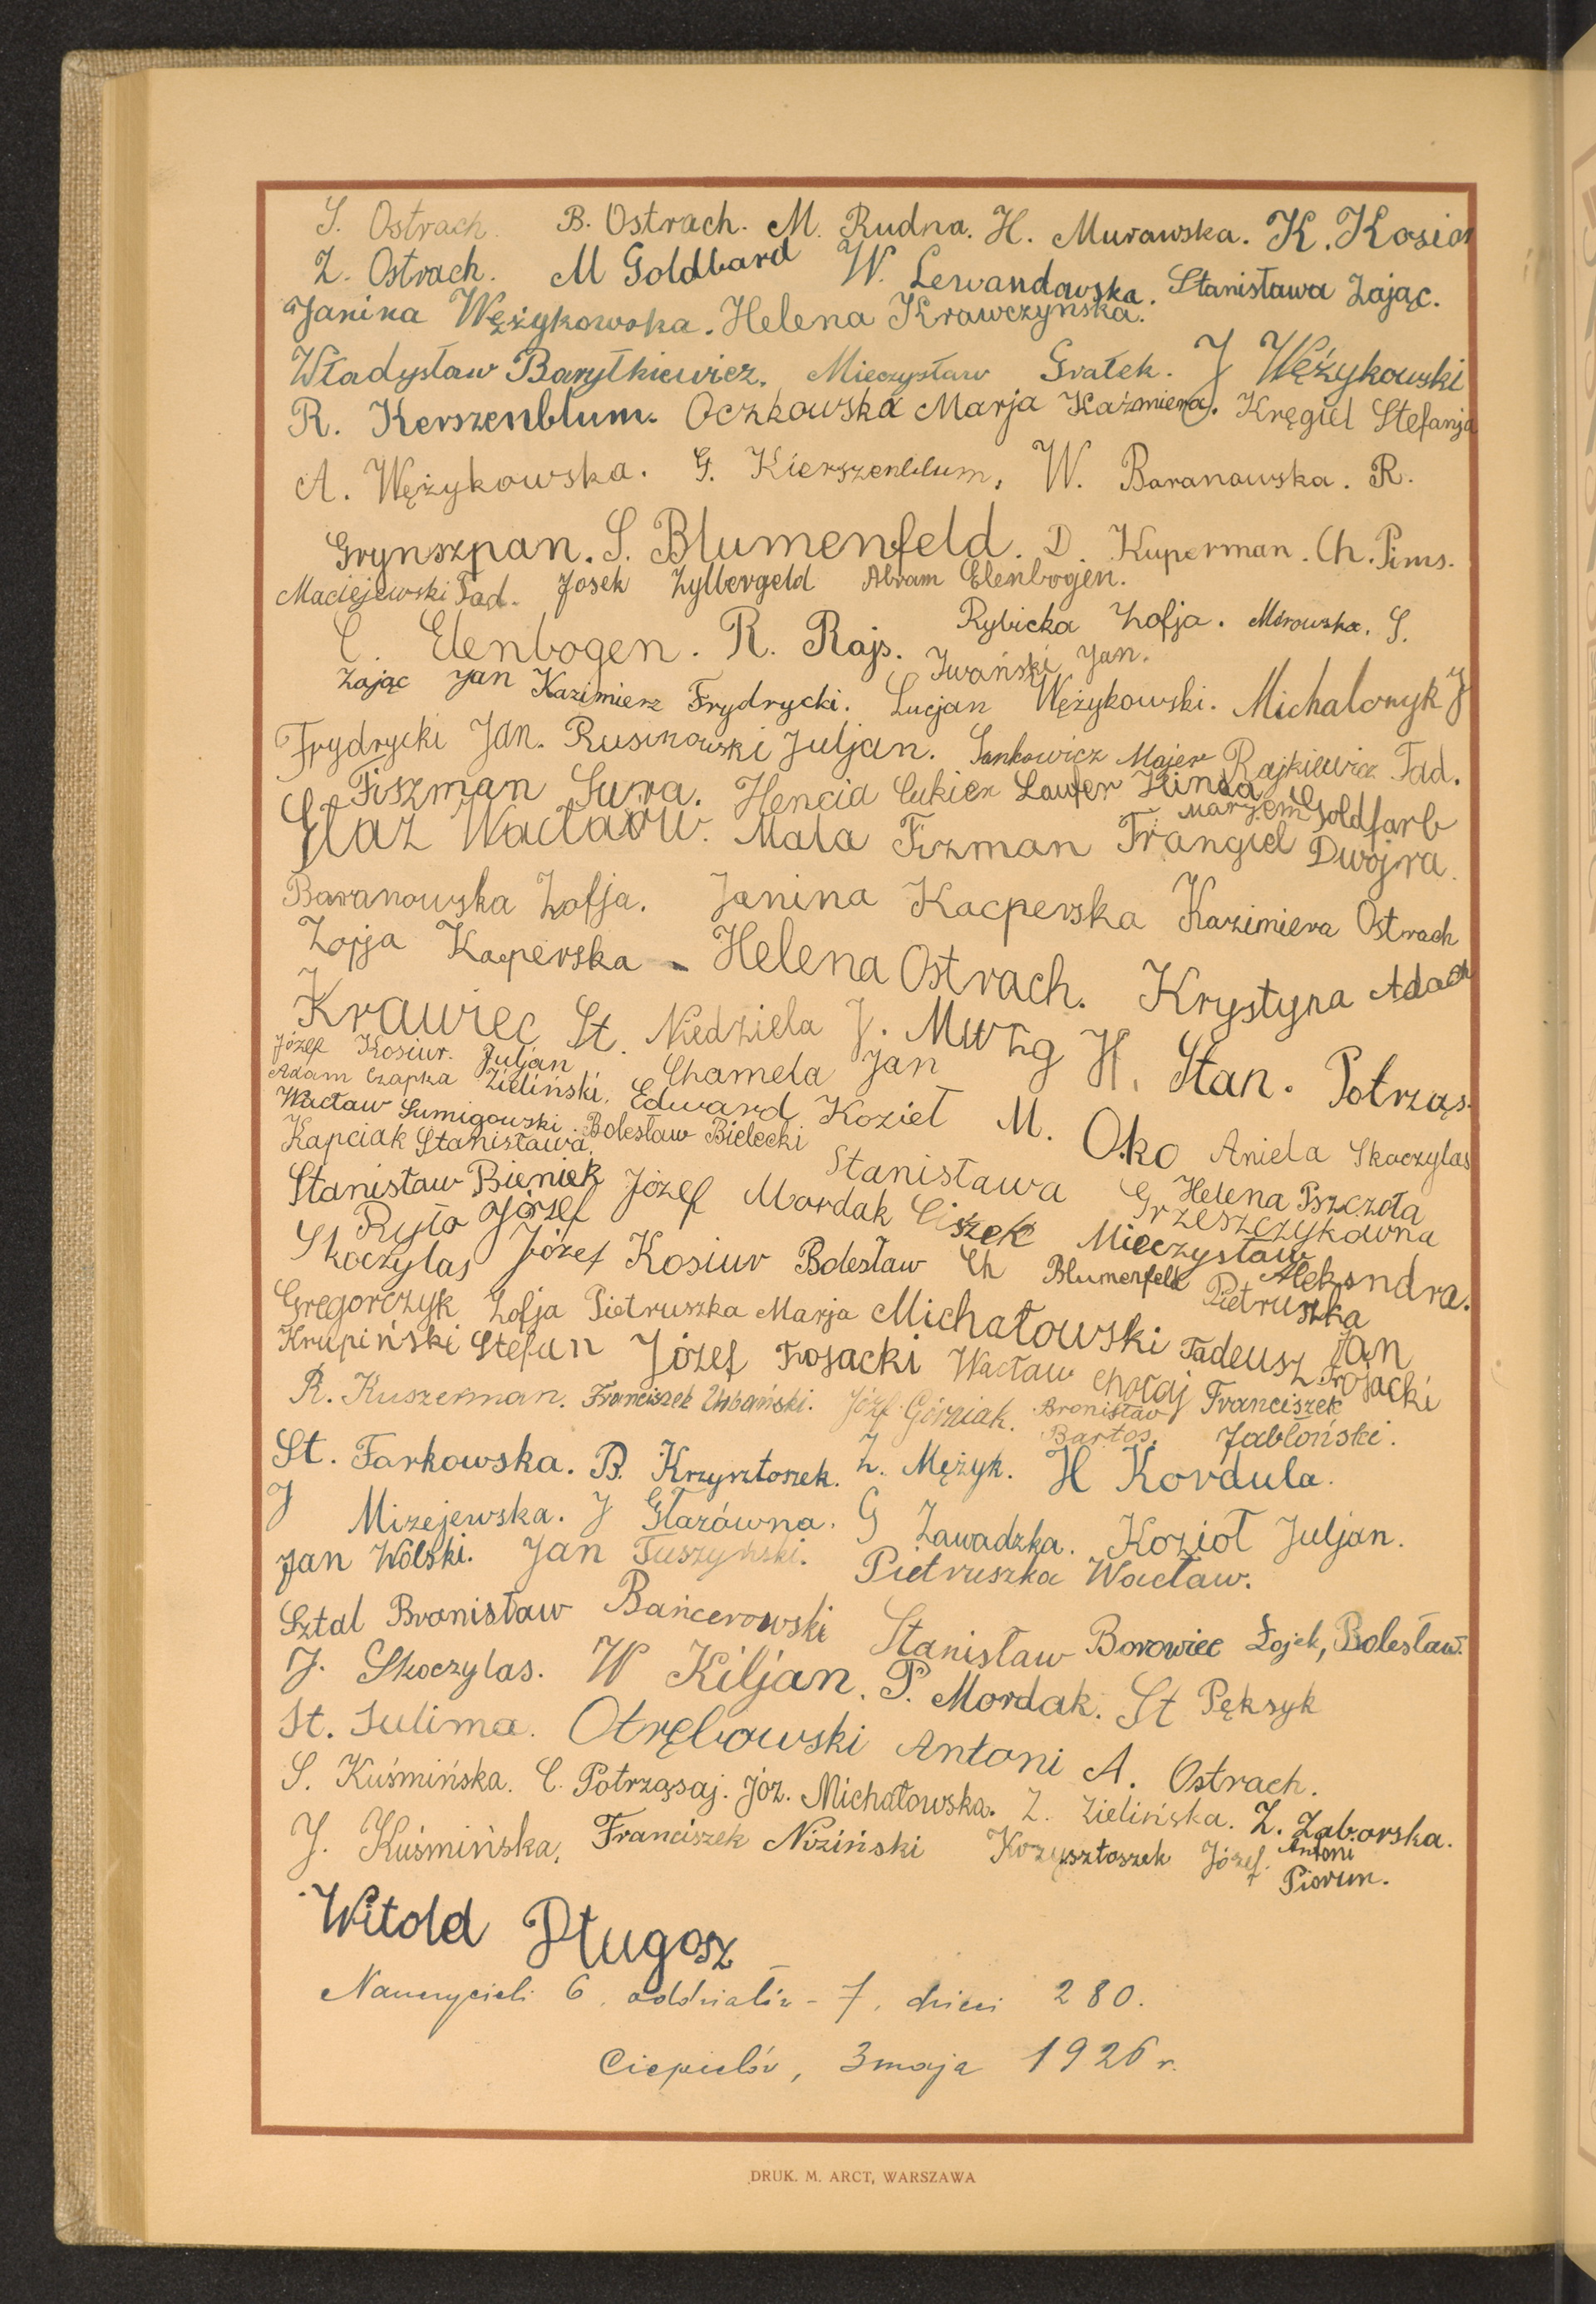 S. Ostrach. B. Ostrach. M. Rudna. H. Murawska. K. Kosior
Z. Ostrach. M Goldbard W. Lewandawska. Stanisława Zając.
Janina Wężykowska. Helena Krawczyńska.
Władysław Baryłkiewicz. Mieczysław Grałek. J Wężykowski
R. Kerszenblum. Oczkowska Marja Kaźmiera. Kręgiel Stefanja
A. Wężykowska. G. Kierszenblum, W. Baranowska. R.
Grynszpan. S. Blumenfeld. D. Kuperman. Ch. Pims.
Maciejewski Tad. Josek Zylbergeld Abram Elenbogen.
C. Elenbogen. R. Rajs. Rybicka Zofja. Mórowska. S.
Zając Jan Kazimierz Frydrycki. Iwański Jan. Lucjan Wężykowski. Michalczyk J
Frydrycki Jan. Rusinowski Juljan. Jankowicz Majer Rajkiewicz Tad.
Fiszman Sura. Hencia Cukier Laufer Hinda Marjem Goldfarb
Głaz Wacław. Mala Fiszman Frangiel Dwojra.
Baranowska Zofja. Janina Kacperska Kazimiera Ostrach
Zofja Kacperska - Helena Ostrach. Krystyna Adach
Krawiec St. Niedziela J. H. Stan. Potrząs.
Józef Kosiur. Juljan Zieliński. Chamela Jan
Adam Czapka Edward Kozieł M. Oko Aniela Skoczylas
Wacław Sumigowski. Bolesław Bielecki
Kapciak Stanisława. Stanisława Grzeszczykówna Helena Pszczoła
Stanisław Bieniek Józef Mordak Ciszek Mieczysław
Ryło Józef Aleksandra.
Skoczylas Józef Kosiur Bolesław Ch Blumenfeld Pietruszka
Gregorczyk Zofja Pietruszka Marja Michałowski Tadeusz Jan Trojacki
Krupiński Stefan Józef Trojacki Wacław Chołaj Franciszek Jabłoński.
R. Kuszerman. Franciszek Urbański. Józef Górniak. Bronisław Bartos.
St. Farkowska. B. Krzysztoszek. Z. Mężyk. H Kordula.
J Mizejewska. J Głazówna. G Zawadzka. Kozioł Juljan.
Jan Wólski. Jan Tuszyński. Pietruszka Wacław.
Sztal Bronisław Bańcerowski Stanisław Borowiec Łojek, Bolesław.
J. Skoczylas. W Kiljan. P. Mordak. St Pęksyk
St. Sulima. Otrębowski Antoni A. Ostrach.
S. Kuśmińska. C. Potrząsaj. Józ. Michałowska. Z. Zielińska. Z. Zaborska.
J. Kuśmińska, Franciszek Niziński Krzysztoszek Józef. Antoni Piorun.
Witold Długosz
Nauczycieli 6, oddziałów - 7, dzieci 280.
Ciepielów, 3 maja 1926 r.
DRUK. M. ARCT, WARSZAWA